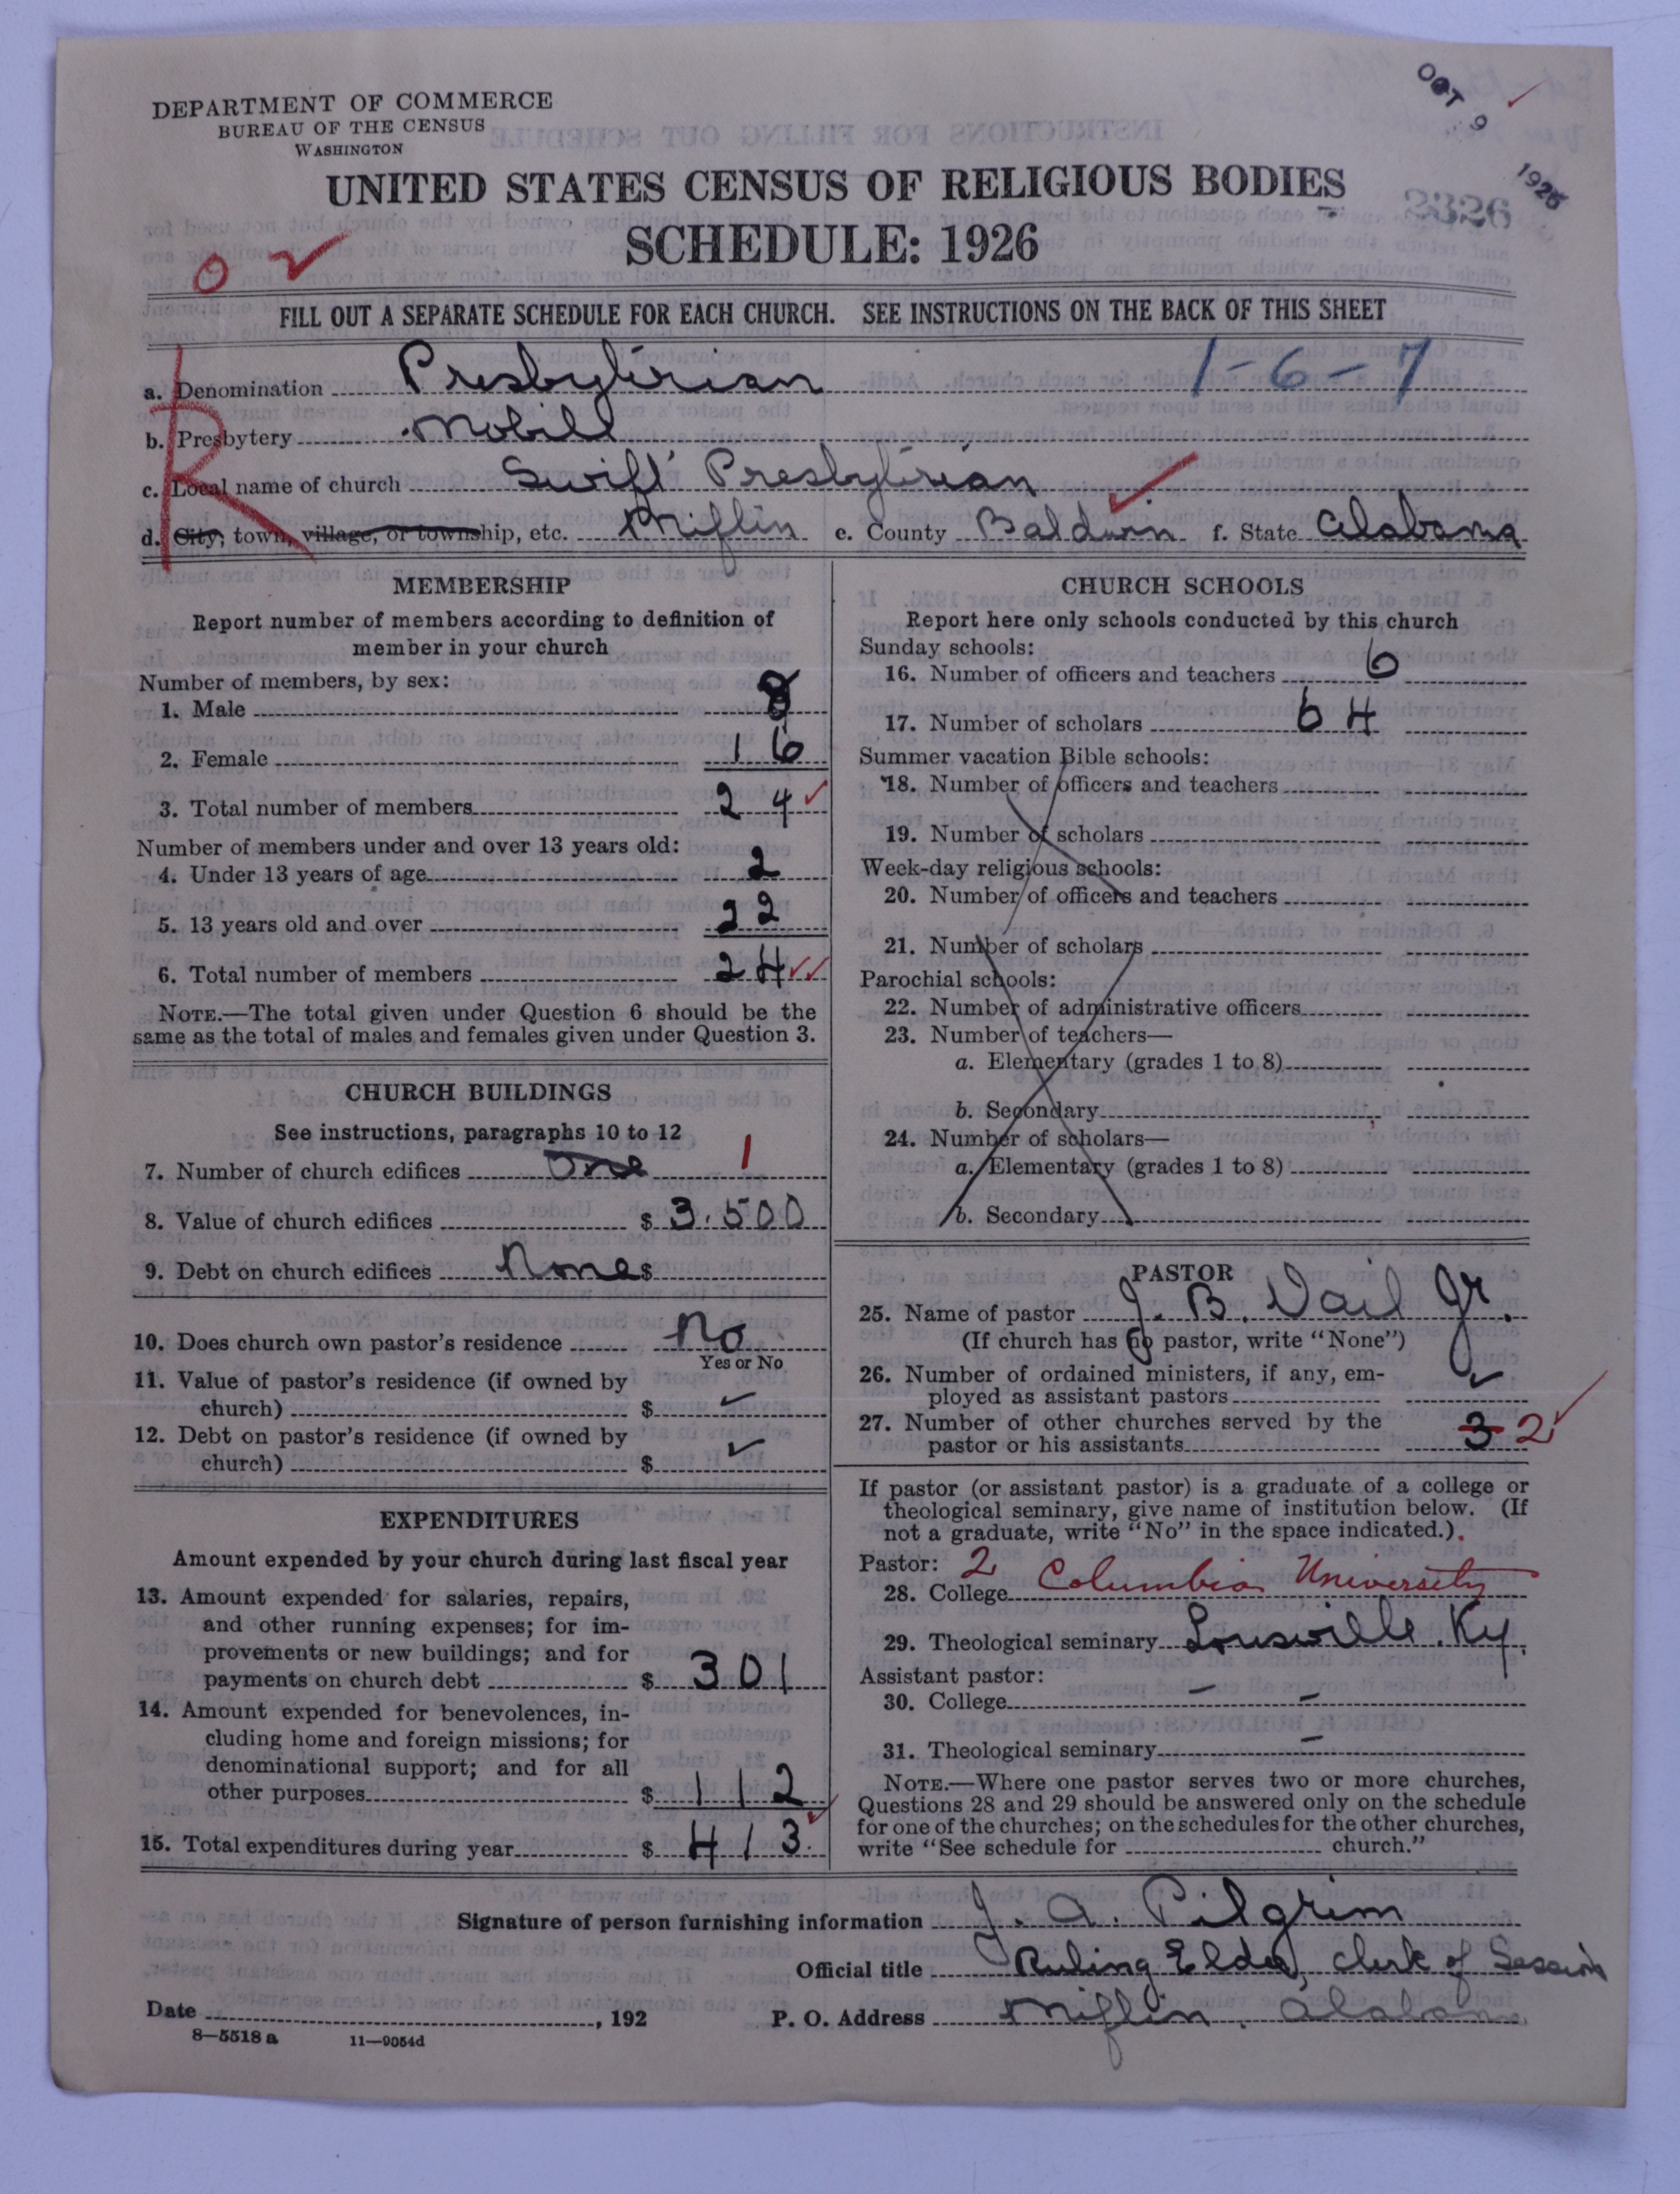 DEPARTMENT OF COMMERCE
BUREAU OF THE CENSUS
WASHINGTON
OCT 9 1926
UNITED STATES CENSUS OF RELIGIOUS BODIES
2326
SCHEDULE: 1926
O
FILL OUT A SEPARATE SCHEDULE FOR EACH CHURCH. SEE INSTRUCTIONS ON THE BACK OF THIS SHEET
R
a. Denomination Presbyterian 1-6-7
b. Presbytery Mobill
c. Local name of church Swift Presbyterian
d. City, town, village, or township, etc. Miflin e. County Baldwin f. State Alabama
MEMBERSHIP
Report number of members according to definition of
member in your church
Number of members, by sex:
1. Male 8
2. Female 16
3. Total number of members 24
Number of members under and over 13 years old:
4. Under 13 years of age 2
5. 13 years old and over 22
6. Total number of members 24
NOTE.—The total given under Question 6 should be the
same as the total of males and females given under Question 3.
CHURCH BUILDINGS
See instructions, paragraphs 10 to 12
7. Number of church edifices One 1
8. Value of church edifices $ 3.500
9. Debt on church edifices None $
10. Does church own pastor's residence No
Yes or No
11. Value of pastor's residence (if owned by
church) $ ✓
12. Debt on pastor's residence (if owned by
church) $ ✓
EXPENDITURES
Amount expended by your church during last fiscal year
13. Amount expended for salaries, repairs,
and other running expenses; for im-
provements or new buildings; and for
payments on church debt $ 301
14. Amount expended for benevolences, in-
cluding home and foreign missions; for
denominational support; and for all
other purposes $ 112
15. Total expenditures during year $ 413
CHURCH SCHOOLS
Report here only schools conducted by this church
Sunday schools:
16. Number of officers and teachers 6
17. Number of scholars 64
Summer vacation Bible schools:
18. Number of officers and teachers
19. Number of scholars
Week-day religious schools:
20. Number of officers and teachers
21. Number of scholars
Parochial schools:
22. Number of administrative officers
23. Number of teachers—
a. Elementary (grades 1 to 8)
b. Secondary
24. Number of scholars—
a. Elementary (grades 1 to 8)
b. Secondary
PASTOR
25. Name of pastor J. B. Vail Jr.
(If church has no pastor, write "None")
26. Number of ordained ministers, if any, em-
ployed as assistant pastors ✓
27. Number of other churches served by the
pastor or his assistants 3 2
If pastor (or assistant pastor) is a graduate of a college or
theological seminary, give name of institution below. (If
not a graduate, write "No" in the space indicated.)
Pastor: 2
28. College Columbia University
29. Theological seminary Louisville. Ky.
Assistant pastor:
30. College – –
31. Theological seminary –
NOTE.—Where one pastor serves two or more churches,
Questions 28 and 29 should be answered only on the schedule
for one of the churches; on the schedules for the other churches,
write "See schedule for church."
Signature of person furnishing information J. A. Pilgrim
Official title Ruling Elder, Clerk of Session
Date , 192 P. O. Address Miflin. Alabama
8—5518 a 11—9054d